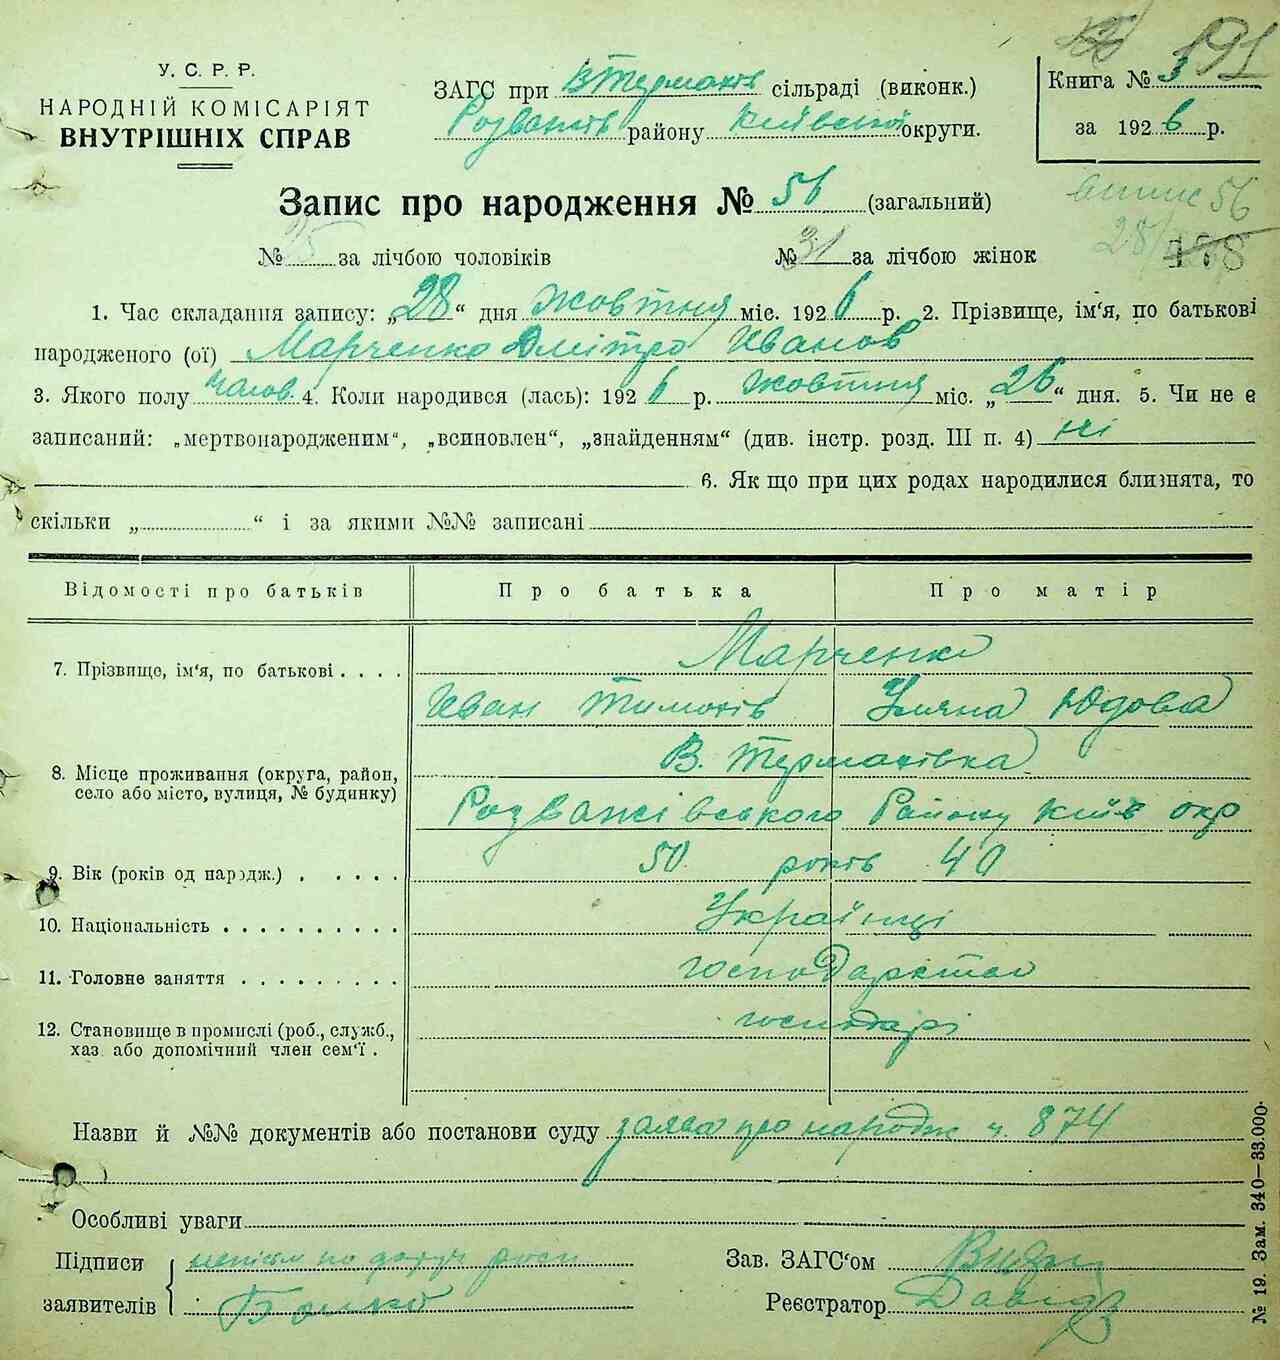 191
У. С. Р. Р.
НАРОДНІЙ КОМІСАРІЯТ
ВНУТРІШНІХ СПРАВ
ЗАГС при В Термахів сільраді (виконк.)
Розважів району Київської округи.
Книга № 3
за 1926 р.
Запис про народження № 56 (загальний)
56
28/
178
№ 25 за лічбою чоловіків № 31 за лічбою жінок
1. Час складання запису: „28“ дня жовтня міс. 1926 р. 2. Прізвище, ім‘я, по батькові
народженого (ої) Марченко Дмітро Іванов
3. Якого полу чолов. 4. Коли народився (лась): 1926 р. жовтня міс. „26“ дня. 5. Чи не є
записаний: „мертвонародженим“, „всиновлен“, „знайденням“ (див. інстр. розд. III п. 4) ні
6. Як що при цих родах народилися близнята, то
скільки „ “ і за якими №№ записані
Відомості про батьків Про батька Про матір
7. Прізвище, ім‘я, по батькові . . . . Марченко
Иван Тимохів Уляна Юдова
8. Місце проживання (округа, район, село або місто, вулиця, № будинку) В. Термахівка
Розважівського Району Київ окр
9. Вік (років од народж.) . . . . . 50 років 40
10. Національність . . . . . . . . . . Українці
11. Головне заняття . . . . . . . . . господарство
12. Становище в промислі (роб., служб., хаз. або допомічний член сем‘ї . господарі
Назви й №№ документів або постанови суду заява про народж ч. 874
Особливі уваги
Підписи заявителів
неписьм по доруч
Зав. ЗАГС‘ом
Реєстратор
№ 19. Зам. 340—33.000.